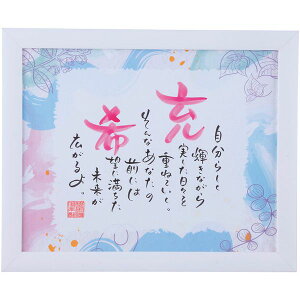 充希
自分らしく
輝きながら
充実した日々を
重ねていく。
そんなあなたの
前には
希望に満ちた
未来が
広がるよ。